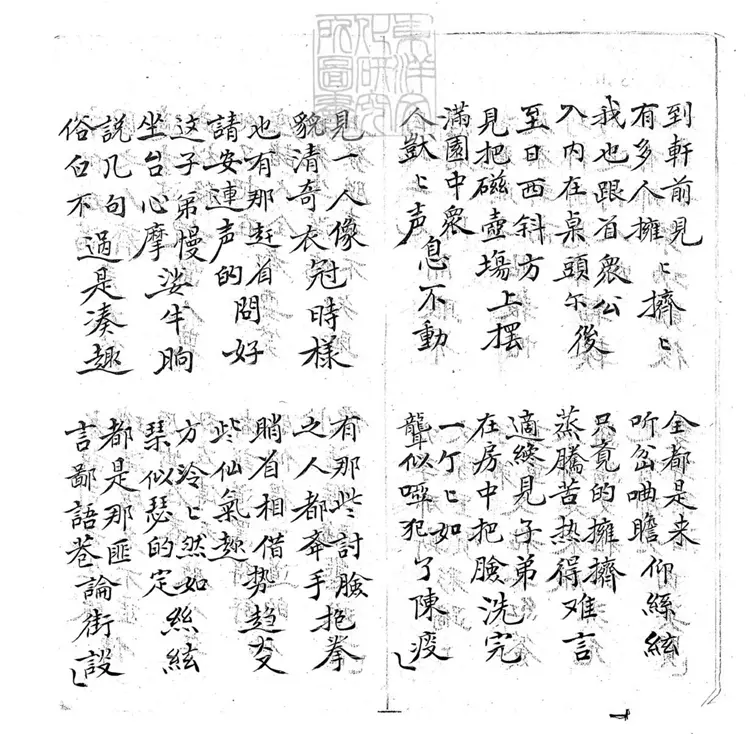 到軒前見
有多人擁ヒ擠ヒ
全都是来
听岔曲瞻仰絲絃
我也跟着衆公
入内在桌頭尔後
只竟的擁擠
蒸騰苦热得难言
至日西斜方
見把磁壺塲上擺
適纔見子弟
在房中把臉洗完
滿園中衆
人獃ヒ声息不動
一个ヒ如
聾似啞犯了陳疫
見一人像
貌清奇衣冠時樣
有那些討臉
之人都奔手抱拳
也有那赶着問好
請安連声的
躺着相借势趋炎
些仙氣
这子弟慢
坐台心摩娑半晌
方泠ヒ然如絲絃
琴似瑟的定
説几句
俗白不過是凑趣
都是那匪
言鄙語巷論街談